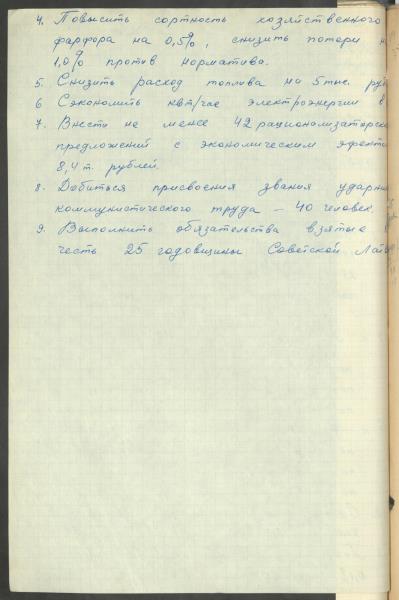 4. Повысить сортность хозяйственного
фарфора на 0,5%, снизить потери
1,0% против норматива.
5. Снизить расход топлива на 5 тыс. руб
6 Сэкономить квт/час электроэнергии в
7. Внести не менее 42 рационализаторск
предложений с экономическим эфекти
8,4 т. рублей.
8. Добиться присвоения звания ударни
коммунистического труда – 40 человек.
9. Выполнить обязательства взятые
честь 25 годовщины Советской Латв